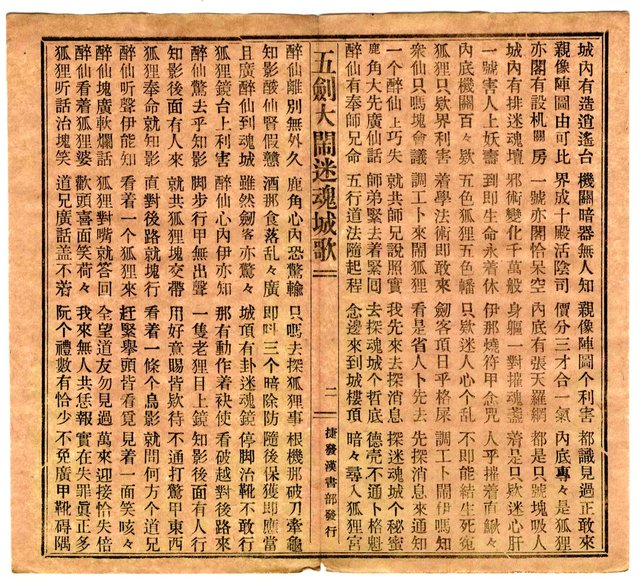 城內有造逍遙台 機關暗器無人知 親像陣圖個利害 都識見過正敢來
親像陣圖由可比 界成十殿活陰司 價分三才合一氣 內底專々是狐狸
亦閣有設机關房 一號亦閣恰呆空 內底有張天羅網 都是只號塊吸人
城內有排迷魂壇 邪術變化千萬般 身軀一對摧魂盞 若是只欵迷心肝
一號害人上妖壽 到即生命永着休 伊那燒符甲念咒 人乎摧着直鍬々
內底機關百々欵 五色狐狸五色幡 只欵迷人心個乱 不即能結生死冤
狐狸只欵界利害 着學法術即敢來 劍客項日乎格屎 調工卜鬧伊嗎知
衆仙只嗎塊會議 調工卜來鬧狐狸 看是省人卜先去 先探消息來通知
一個醉仙上巧失 就共師兄說照實 我先來去探消息 探迷魂城個秘蜜
鹿角大先廣仙話 師弟緊去着緊囘 去探魂城个哲底 德壳不通卜格魁
醉仙有奉師兄命 五行道法隨起程 念邊來到城樓頂 暗々尋入狐狸宮
五劍大鬧迷魂城歌
二
捷發漢書部發行
醉仙離別無外久 鹿角心內恐驚輸 只嗎去探狐狸事 根機那破刀牽龜
知影酸仙腎假戇 酒那食落乱々廣 即叫三個暗除防 隨後保獲即應當
且廣醉仙到魂城 雖然劍客亦驚々 城項有卦迷魂鏡 停脚治靴不敢行
狐狸鏡台上利害 醉仙心內伊亦知 那有動作着袂使 看破越對後路來
醉仙驚去乎知影 脚步行甲無出聲 一隻老狸日上鏡 知影後面有人行
知影後面有人來 就共狐狸塊交帶 用好意賜皆欵待 不通打驚甲東西
狐狸奉命就知影 直對後路就塊行 看着一條個鳥影 就問何方個道兄
醉仙听聲伊能知 看着一個狐狸來 赶緊擧頭皆看覓 見着一面笑咳々
醉仙塊廣軟爛話 狐狸對嘴就答回 全望道友勿見過 萬來迎接恰失倍
醉仙看着狐狸婆 歡頭喜面笑荷々 我來無人共恁報 實在失罪眞正多
狐狸听話治塊笑 道兄廣話盖不若 阮個禮數有恰少 不免廣甲靴碍隅